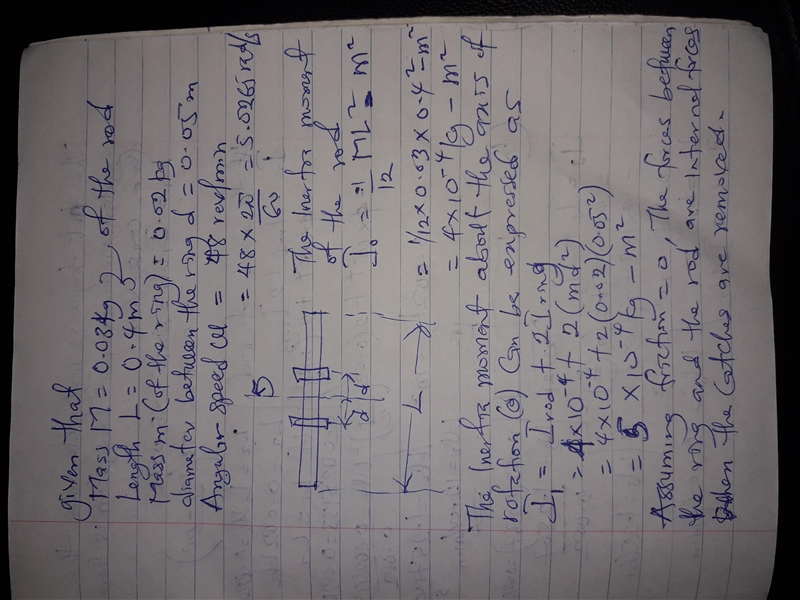 given that
Mass M = 0.03kg } of the rod
Length L = 0.4m
Mass m (of the ring) = 0.02kg
diameter between the ring d = 0.05m
Angular speed ω = 48 rev/min
= 48 × 2π/60 = 5.0265 rad/s
5
The Inertia moment
of the rod
I₀ = 1/12 ML² – m²
d d
L
= 1/2 × 0.03 × 0.4² – m²
= 4 × 10⁻⁴ kg – m²
The Inertia moment about the axis of
rotation (θ) Can be expressed as
I₁ = Irod + 2Iring
= 4×10⁻⁴ + 2 (md²)
= 4×10⁻⁴ + 2(0.02)(0.05²)
= 5 × 10⁻⁴ kg – m²
Assuming friction = 0, The forces between
the ring and the rod are internal forces
when the Catches are removed.